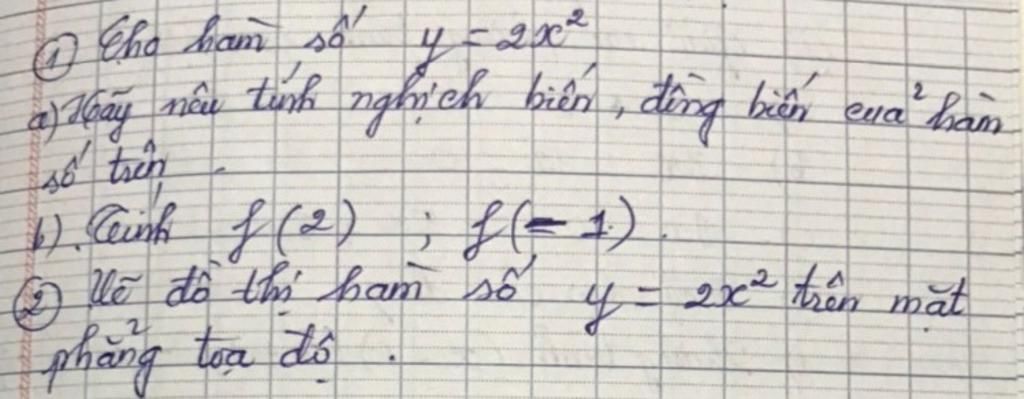 ① Cho hàm số y = 2x²
a) Hãy nêu tính nghịch biến, đồng biến của hàm
số trên.
b). Tính f(2) ; f(-1).
② Vẽ đồ thị hàm số y = 2x² trên mặt
phẳng tọa độ.